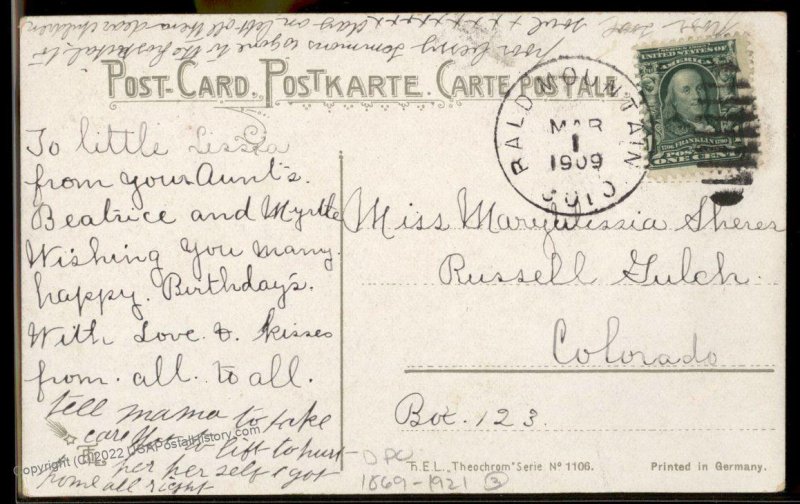 Poor Gerry Sommons is gone to the hospital to
day an left all them dear children
Post-Card. Postkarte. Carte postale
BALDMOUNTAIN
MAR
1
1909
COLO.
UNITED STATES OF
AMERICA
1706 FRANKLIN 1790
POSTAGE
ONE CENT
To little Lissia
from your Aunt's.
Beatrice and Myrtle
Wishing you many.
happy. Birthday's.
With Love. & kisses
from. all. to all.
tell mama to take
care not to lift to hurt
her her self I got
home all right
Miss Maryulissia Sherer
Russell Gulch.
Colorado
Box. 123.
DPO
1869-1921 3
T.E.L. „Theochrom" Serie No 1106.
Printed in Germany.
Copyright (C) 2022 USAPostalHistory.com